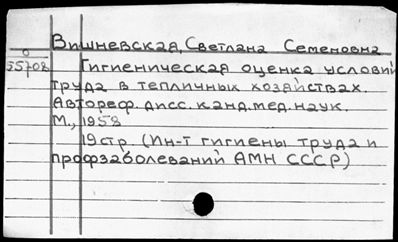 Вишневская, Светлана Семеновна
О
55708
Гигиеническая оценка условий
труда в тепличных хозяйствах.
Автореф. дисс. канд. мед. наук.
М., 1958
19 стр. (Ин-т гигиены труда и
профзаболеваний АМН СССР)